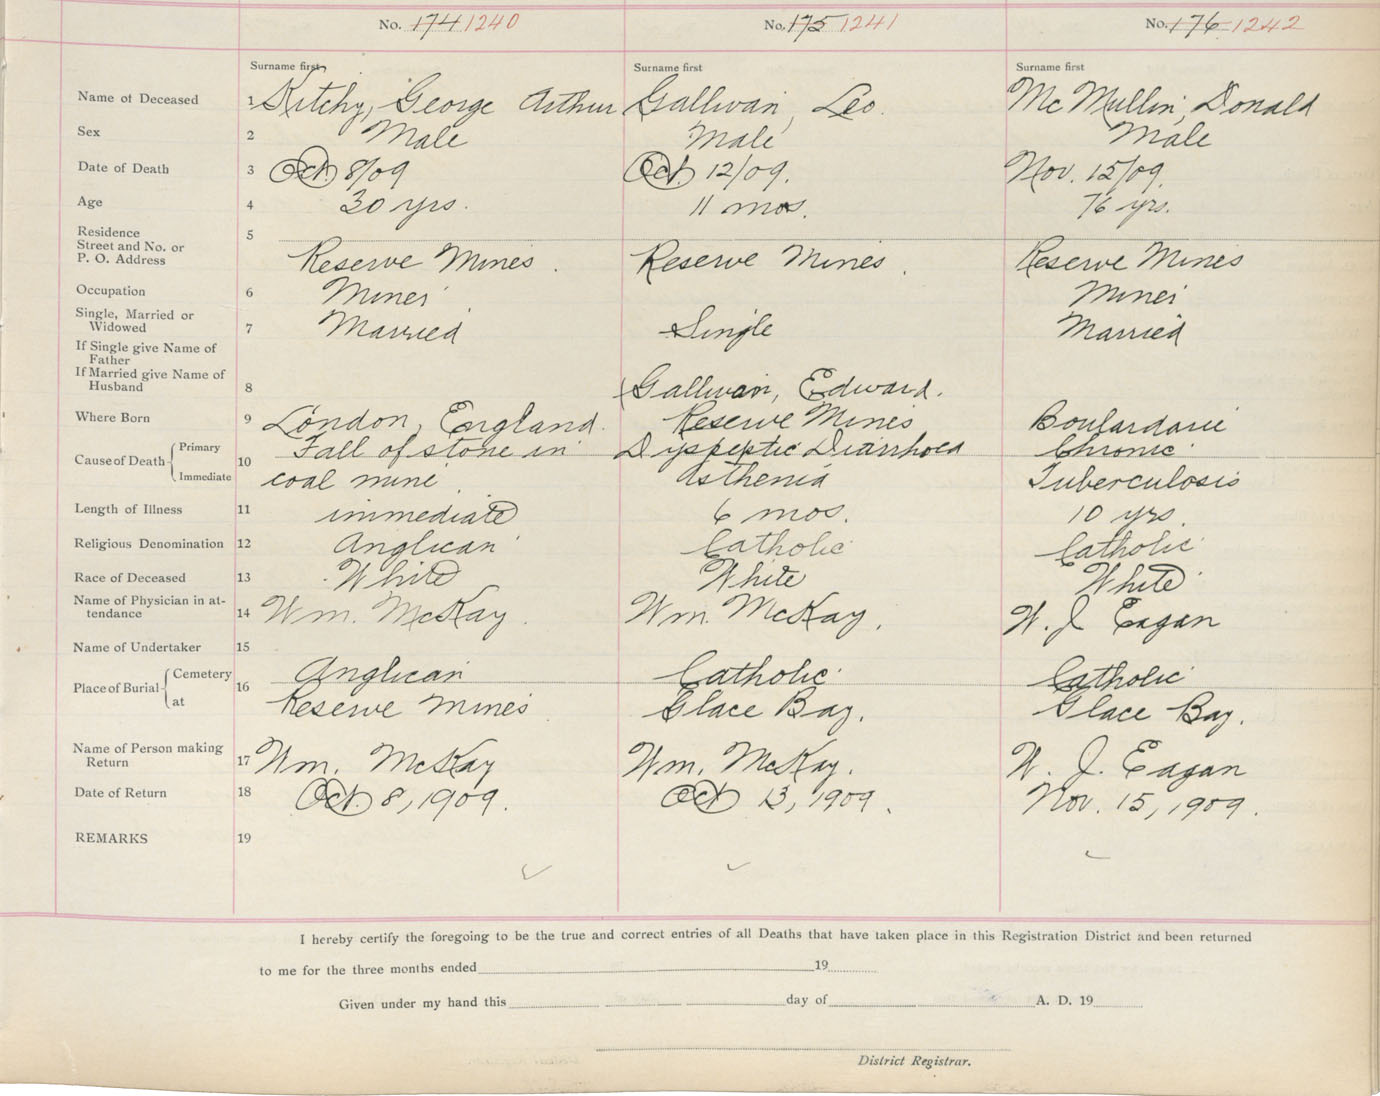 No. 174 1240 No. 175 1241 No. 176 1242
Surname first Surname first Surname first
Name of Deceased 1 Kitchy, George Arthur Gallivan, Leo. Mc Mullin, Donald
Sex 2 Male Male Male
Date of Death 3 Oct. 8/09 Oct. 12/09. Nov. 15/09.
Age 4 30 yrs. 11 mos. 76 yrs.
Residence
Street and No. or 5
P. O. Address Reserve Mines. Reserve Mines. Reserve Mines
Occupation 6 Miner Miner
Single, Married or
Widowed 7 Married Single Married
If Single give Name of
Father
If Married give Name of
Husband 8 Gallivan, Edward.
Where Born 9 London, England. Reserve Mines Boulardarie
Cause of Death Primary 10 Fall of stone in Dyspeptic Diarrhoea Chronic
Immediate coal mine Asthenia Tuberculosis
Length of Illness 11 immediate 6 mos. 10 yrs.
Religious Denomination 12 Anglican Catholic Catholic
Race of Deceased 13 White White White
Name of Physician in at-
tendance 14 Wm. McKay. Wm. McKay. W. J. Eagan
Name of Undertaker 15
Place of Burial Cemetery 16 Anglican Catholic Catholic
at Reserve Mines Glace Bay. Glace Bay.
Name of Person making
Return 17 Wm. McKay Wm. McKay. W. J. Eagan
Date of Return 18 Oct. 8, 1909. Oct. 13, 1909. Nov. 15, 1909.
REMARKS 19
I hereby certify the foregoing to be the true and correct entries of all Deaths that have taken place in this Registration District and been returned
to me for the three months ended 19
Given under my hand this day of A. D. 19
District Registrar.